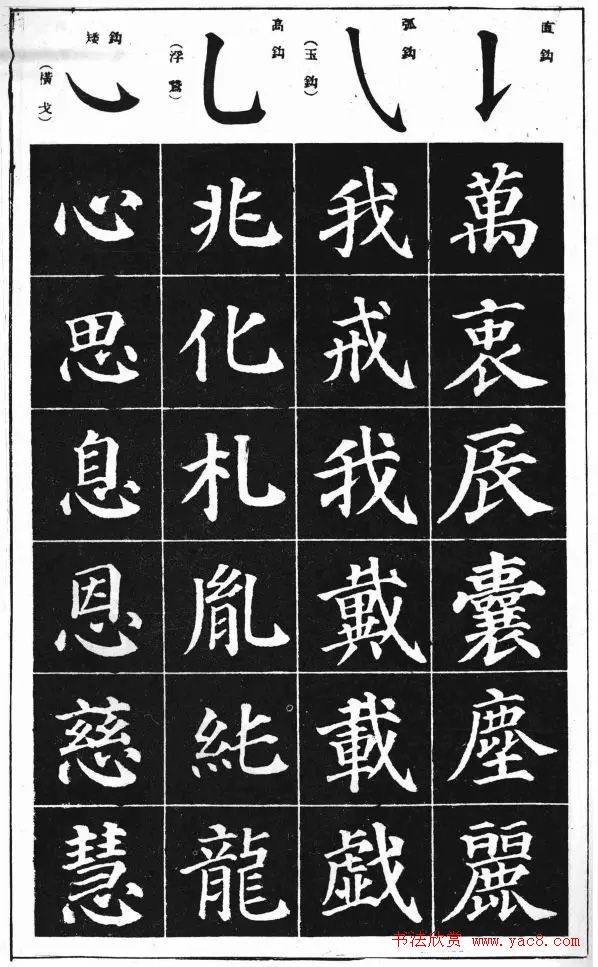 直鈎
萬衷辰囊塵麗
弧鈎
(玉鈎)
我戒我戴載戯
高鈎
(浮鵞)
兆化札胤純龍
矮鈎
(橫戈)
心思息恩慈慧
书法欣赏 www.yac8.com